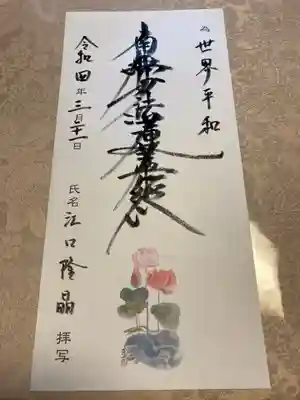 為 世界平和
南無妙法蓮華経
令和四年三月二十一日
氏名 江口隆晶 拝写